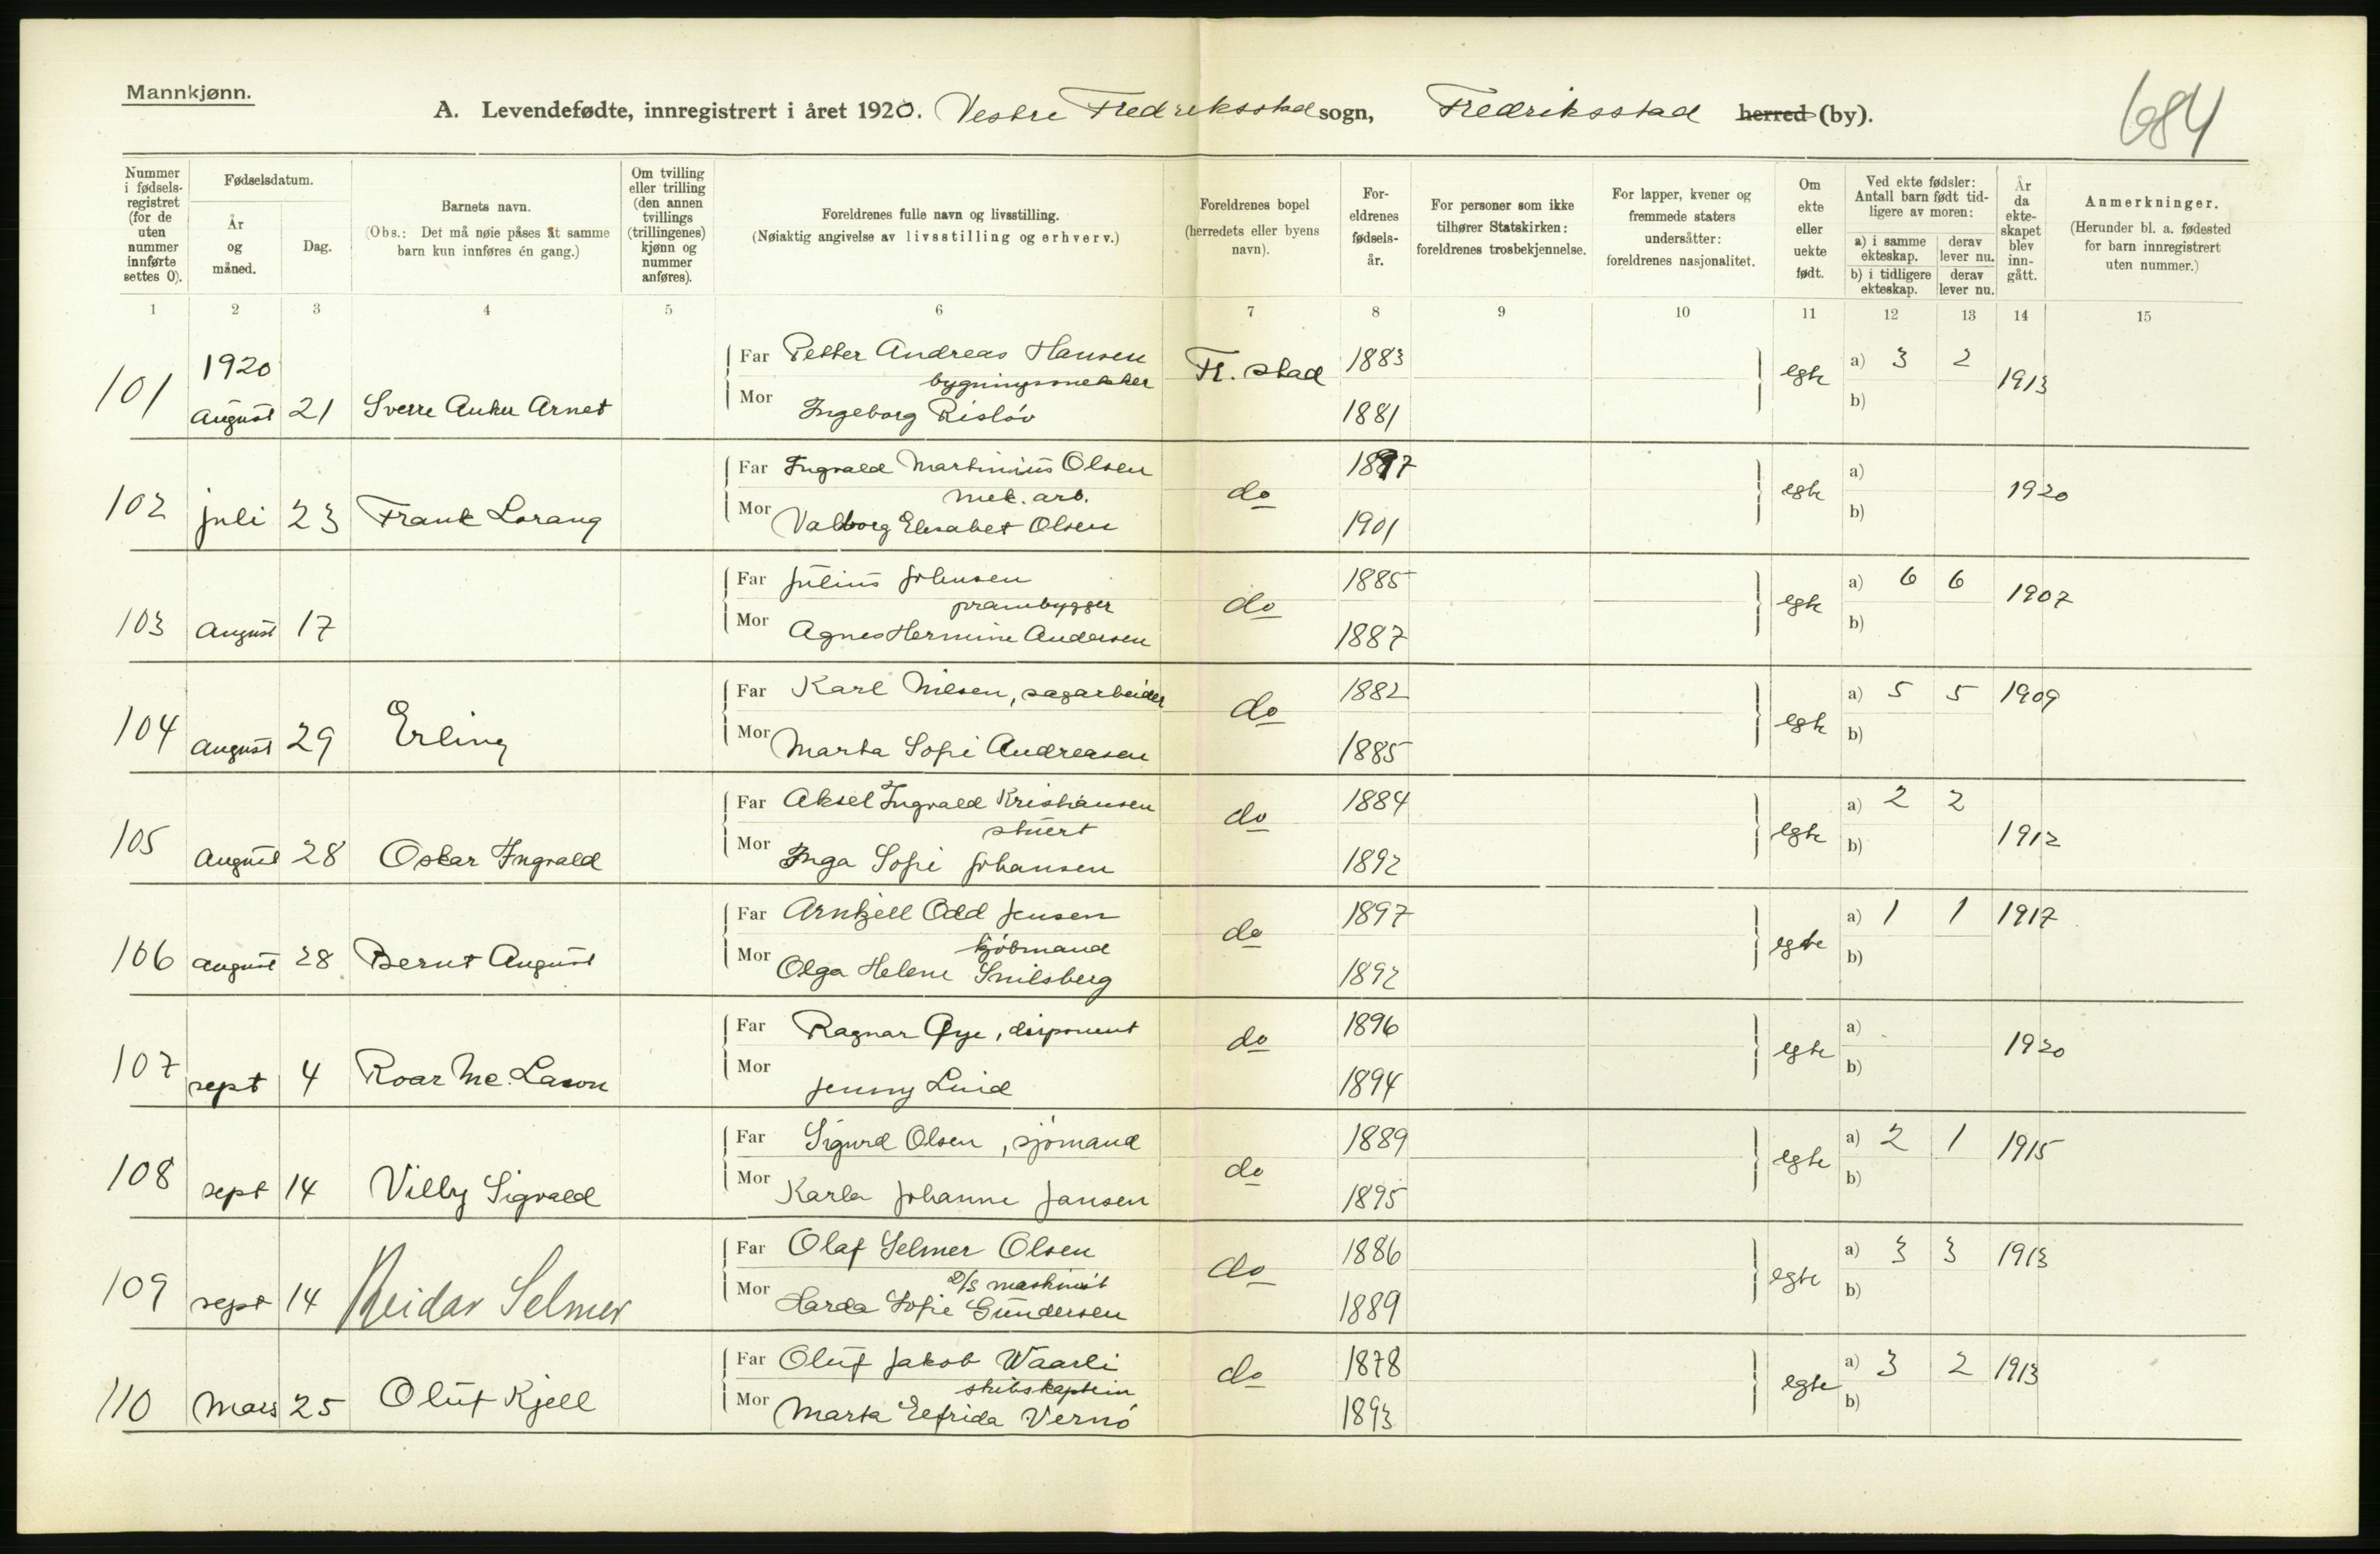 Mannkjønn.
A. Levendefødte, innregistrert i året 1920. Vestre Fredriksstad sogn, Fredriksstad herred (by).
684
Nummer i fødsels-registret (for de uten nummer innførte settes 0).
Fødselsdatum.
År og måned.
Dag.
Barnets navn.
(Obs.: Det må nøie påses åt samme barn kun innføres én gang.)
Om tvilling eller trilling (den annen tvillings (trillingenes) kjønn og nummer anføres).
Foreldrenes fulle navn og livsstilling.
(Nøiaktig angivelse av livsstilling og erhverv.)
Foreldrenes bopel (herredets eller byens navn).
For-eldrenes fødsels-år.
For personer som ikke tilhører Statskirken: foreldrenes trosbekjennelse.
For lapper, kvener og fremmede staters undersåtter: foreldrenes nasjonalitet.
Om ekte eller uekte født.
Ved ekte fødsler: Antall barn født tid-ligere av moren:
a) i samme ekteskap. derav lever nu.
b) i tidligere ekteskap. derav lever nu.
År da ekte-skapet blev inn-gått.
Anmerkninger.
(Herunder bl. a. fødested for barn innregistrert uten nummer.)
1 2 3 4 5 6 7 8 9 10 11 12 13 14 15
101 1920 August 21 Sverre Arnet
Far Petter Andreas Hansen Fr. stad 1883 egte a) 3 2 1913
Mor Ingeborg 1881 b)
102 juli 23 Frank Lorang
Far Ingvald Martinius Olsen 1897 a)
mek. arb. do egte 1920
Mor Valborg Elisabet Olsen 1901 b)
103 August 17
Far Julius Johnsen 1885 a) 6 6
prambygger do egte 1907
Mor Agnes Hermine Andersen 1887 b)
104 August 29 Erling
Far Karl Nilsen, sagarbeider 1882 a) 5 5 1909
do egte
Mor Marta Sofie Andreasen 1885 b)
105 August 28 Oskar Ingvald
Far Aksel Ingvald Kristiansen 1884 a) 2 2
stuert do egte 1912
Mor Inga Sofie Johansen 1892 b)
106 August 28 Bernt August
Far Arnkjell Odd Jensen 1897 a) 1 1 1917
kjöbmand do egte
Mor Olga Helene Snilsberg 1892 b)
107 sept 4 Roar Mc.
Far Ragnar Øye, disponent 1896 a)
do egte 1920
Mor Jenny 1894 b)
108 sept 14 Villy Sigvald
Far Sigurd Olsen, sjömand 1889 a) 2 1 1915
do egte
Mor Karla Johanne Jansen 1895 b)
109 sept 14 Reidar Selmer
Far Olaf Selmer Olsen 1886 a) 3 3 1913
D/S maskinist do egte
Mor Harda Sofie Gundersen 1889 b)
110 Mars 25 Oluf Kjell
Far Oluf Jakob Waarli 1878 a) 3 2 1913
skibskaptein do egte
Mor Marta Elfrida Vernö 1893 b)